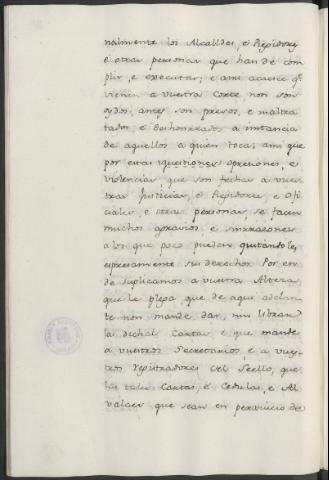 nalmente los Alcalldes, é Regidores
é otras personas que han de com
plir, e executar; e ansi acaesce qe
vienen a vuestra Corte, non son
oydos, antes son presos, e maltra
tados, e deshonrrados a instancia
de aquellos a quien toca; ansi que
por estas questiones opresiones, e
violencias que son fechas a vues
tras Justicias, é Regidores, e Ofi
ciales, e otras personas, se facen
muchos agravios, e sinrazones
a los que poco pueden quitandoles
espresamente sus derechos. Por en
de suplicamos a vuestra Alteza
que le plega que de aqui adelan
te non mande dar, nin librar
las dichas Cartas e que mande
a vuestros Secretarios, e a vues
tros registradores del Seello, que
las tales Cartas, é Cedulas, e Al
valaes que sean en perjuicio de